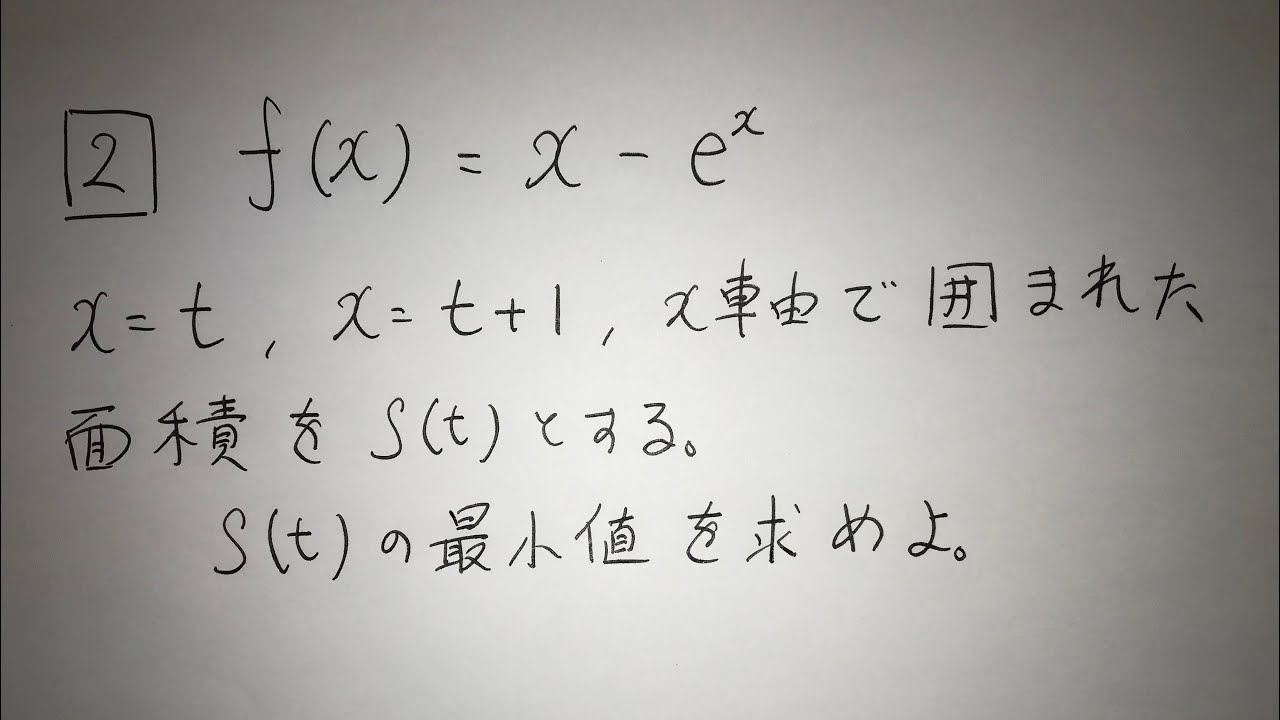 2 f(x) = x - e^x
x=t, x=t+1, x軸で囲まれた
面積をS(t)とする。
S(t)の最小値を求めよ。